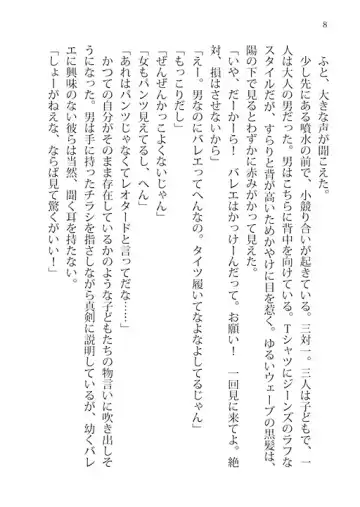 8
ふと、大きな声が聞こえた。
少し先にある噴水の前で、小競り合いが起きている。三対一。三人は子どもで、一
人は大人の男だった。男はこちらに背中を向けている。Ｔシャツにジーンズのラフな
スタイルだが、すらりと背が高いためかやけに目を惹く。ゆるいウェーブの黒髪は、
陽の下で見るとわずかに赤みがかって見えた。
「いや、だーかーら！　バレエはかっけーんだって。お願い！　一回見に来てよ。絶
対、損はさせないから」
「えー。男なのにバレエってへんなの。タイツ履いてなよなよしてるじゃん」
「もっこりだし」
「ぜんぜんかっこよくないじゃん」
「女もパンツ見えてるし、へん」
「あれはパンツじゃなくてレオタードと言ってだな……」
かつての自分がそのまま存在しているかのような子どもたちの物言いに吹き出しそ
うになった。男は手に持ったチラシを指さしながら真剣に説明しているが、幼くバレ
エに興味のない彼らは当然、聞く耳を持たない。
「しょーがねえな、ならば見て驚くがいい！」